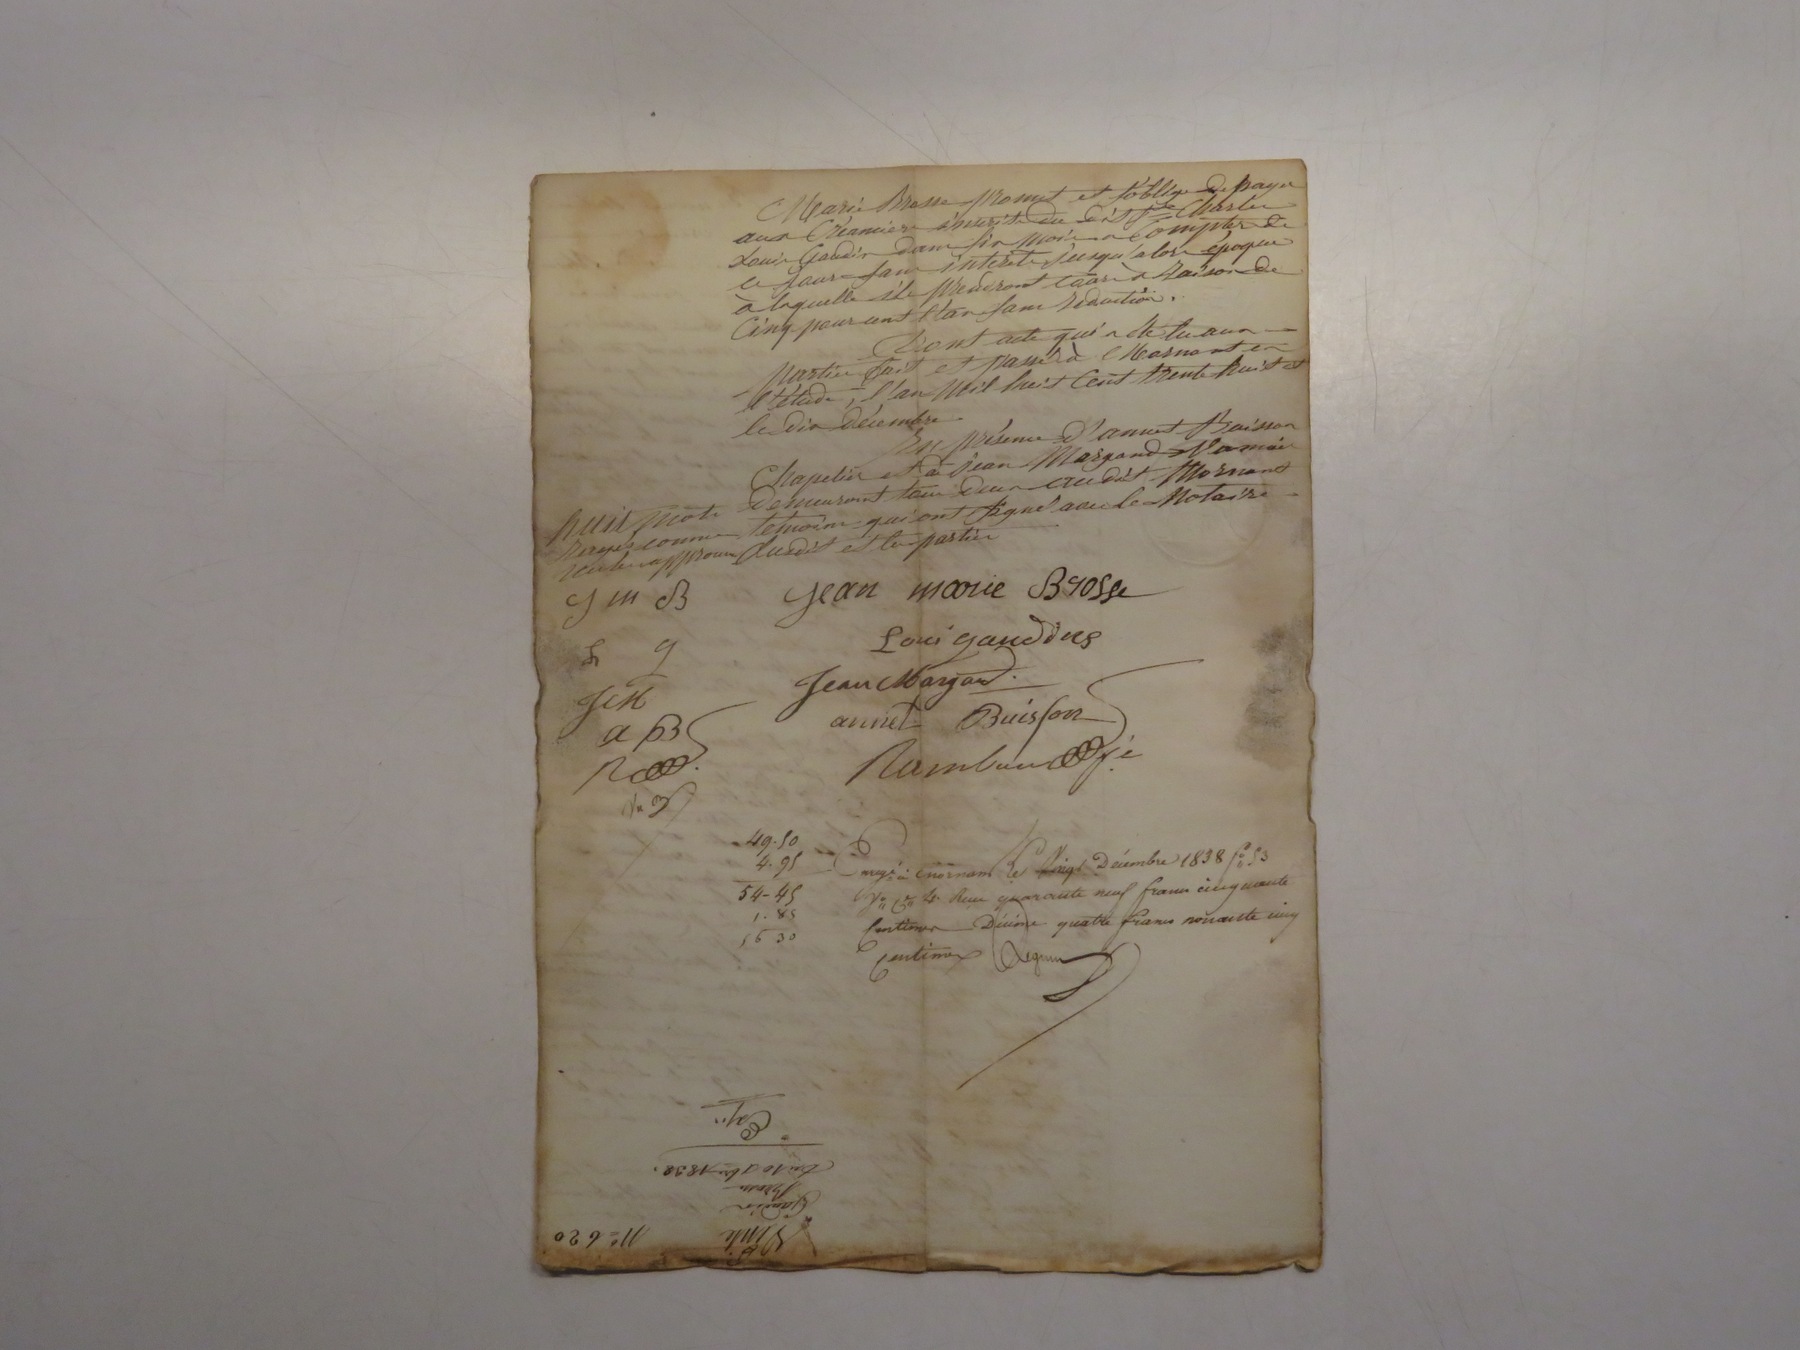 Marie Brosse promet et s'oblige de payer
aux Créanciers inscrits du dit Charles
Louis Gaudin dans six mois a Compter de
ce jour sans intérêts jusqu'alors époque
à laquelle ils prendront cours à Raison de
Cinq pour cent l'an sans réduction.
Dont acte qui a été lu aux
Parties fait et passé à Mornant en
l'étude, l'an Mil huit Cent trente huit et
le dix décembre
En présence d'annet Buisson
Chapelier et de Jean Margand
demeurant tous deux au dit Mornant
huit mots témoins qui ont signé avec le Notaire
Rayés comme susdit et les parties
nuls approuvés
J m B Jean marie Brosse
L g Loui gaudins
J M Jean Margand.
a B annet Buisson
R Rambaud
49.50
4.95
54-45
1.85
56 30
Enregé à mornant le vingt Décembre 1838 fo 53
Vo Ce 4. Reçu quarante neuf francs cinquante
Centimes Décime quatre francs nonante cinq
Centimes
No 620
Vente
Gaudin
Brosse
Du 10 Xbre 1838.